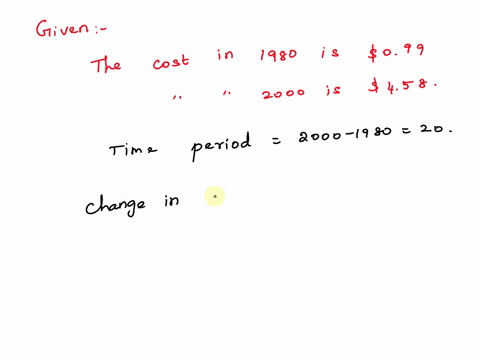 Given:-
The cost in 1980 is $0.99
" " 2000 is $4.58.
Time period = 2000-1980 = 20.
Change in